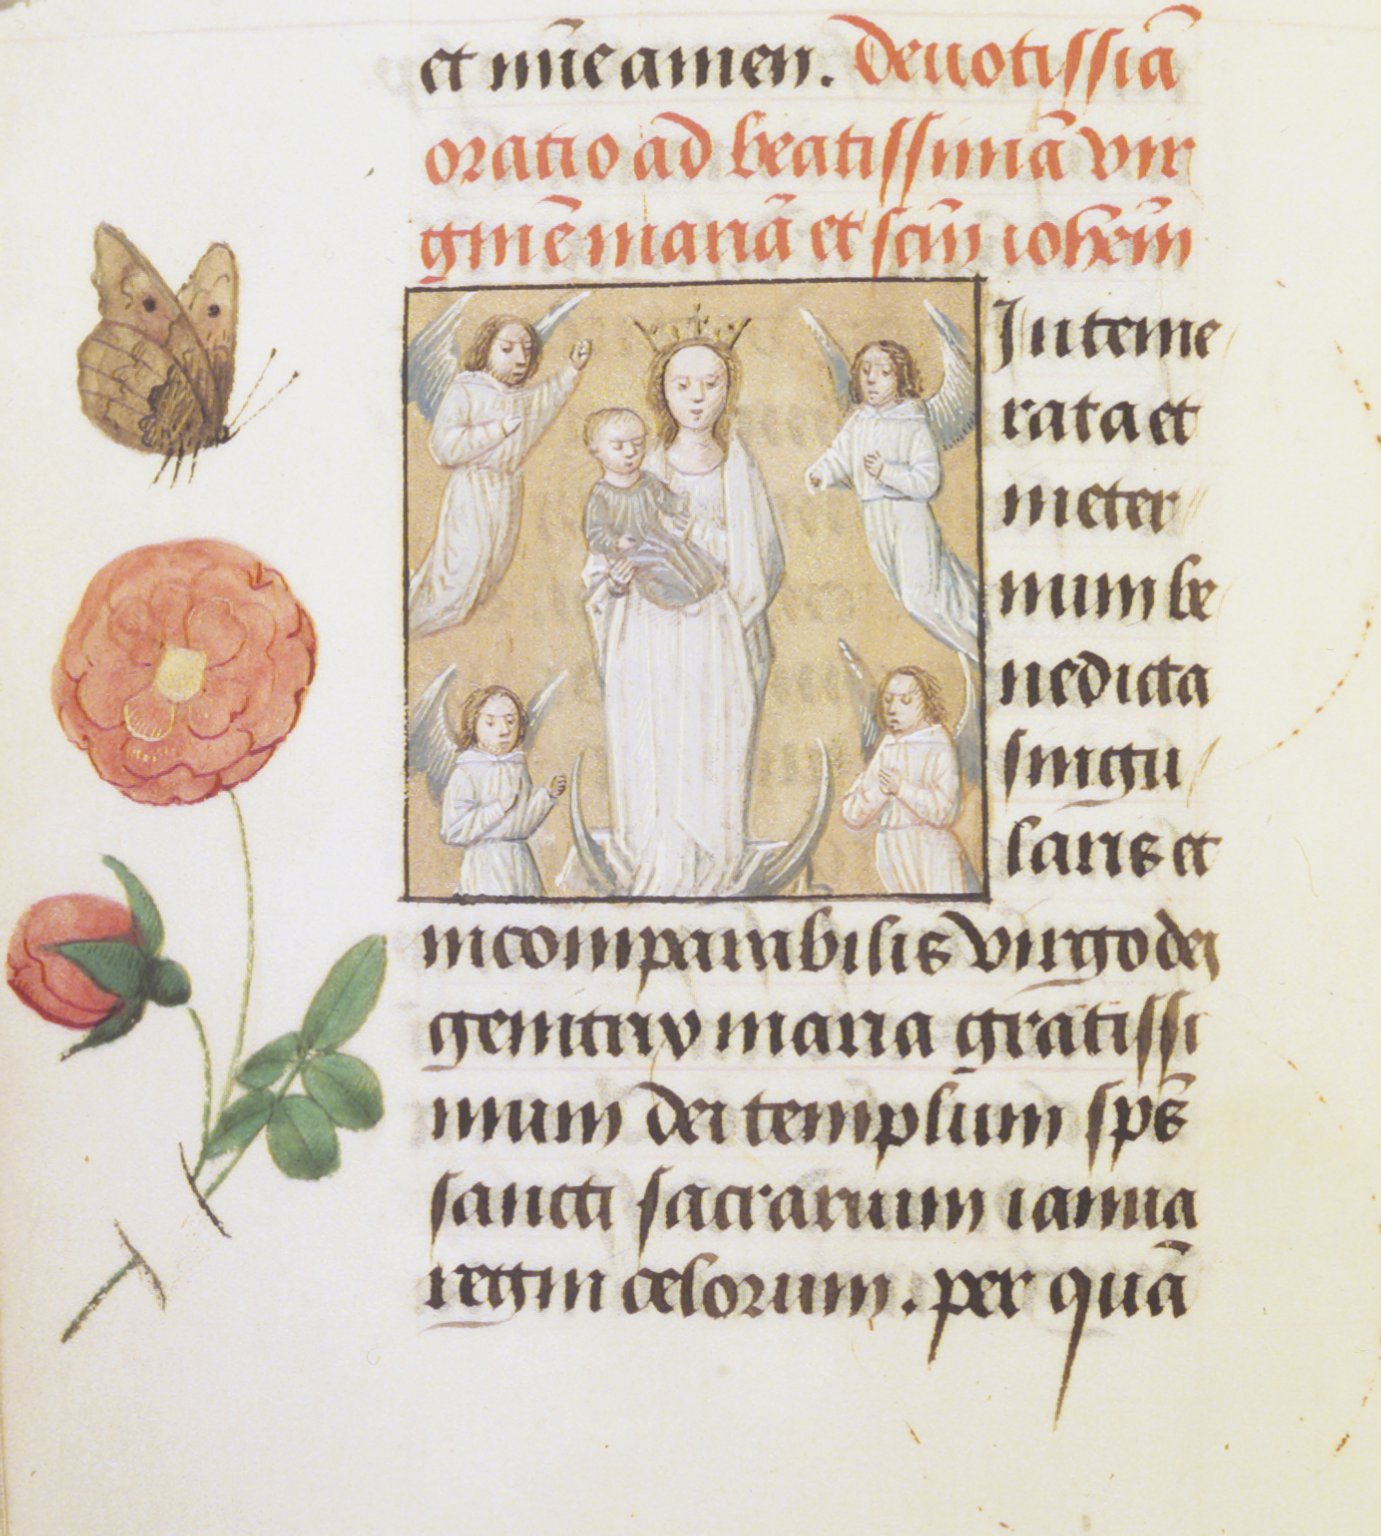 et nūc amen. Deuotissiā
oratio ad beatissimā vir
ginē mariā et scm̄ ioħem̄
Inteme
rata et
in eter
num be
nedicta
singu
laris et
incomparabilis virgo dei
genitrix maria gratissi
mum dei templum sp̄s
sancti sacrarium ianua
regni celorum. per quā